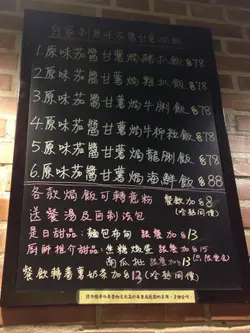 自家制原味茄醬甘薯焗飯
1.原味茄醬甘薯焗豬扒飯 $78
2.原味茄醬甘薯焗雞扒飯 $78
3.原味茄醬甘薯焗牛脷飯 $78
4.原味茄醬甘薯焗牛柳粒飯 $78
5.原味茄醬甘薯焗龍脷飯 $78
6.原味茄醬甘薯焗海鮮飯 $88
各款焗飯可轉意粉 餐飲加$8
送餐湯及自制法包 (冷熱同價)
是日甜品:麵包布甸 跟餐加$13
廚師推介甜品:焦糖燉蛋 跟餐加$15
南瓜批 跟餐加$13
餐飲轉香草奶茶加$13(冷熱同價)